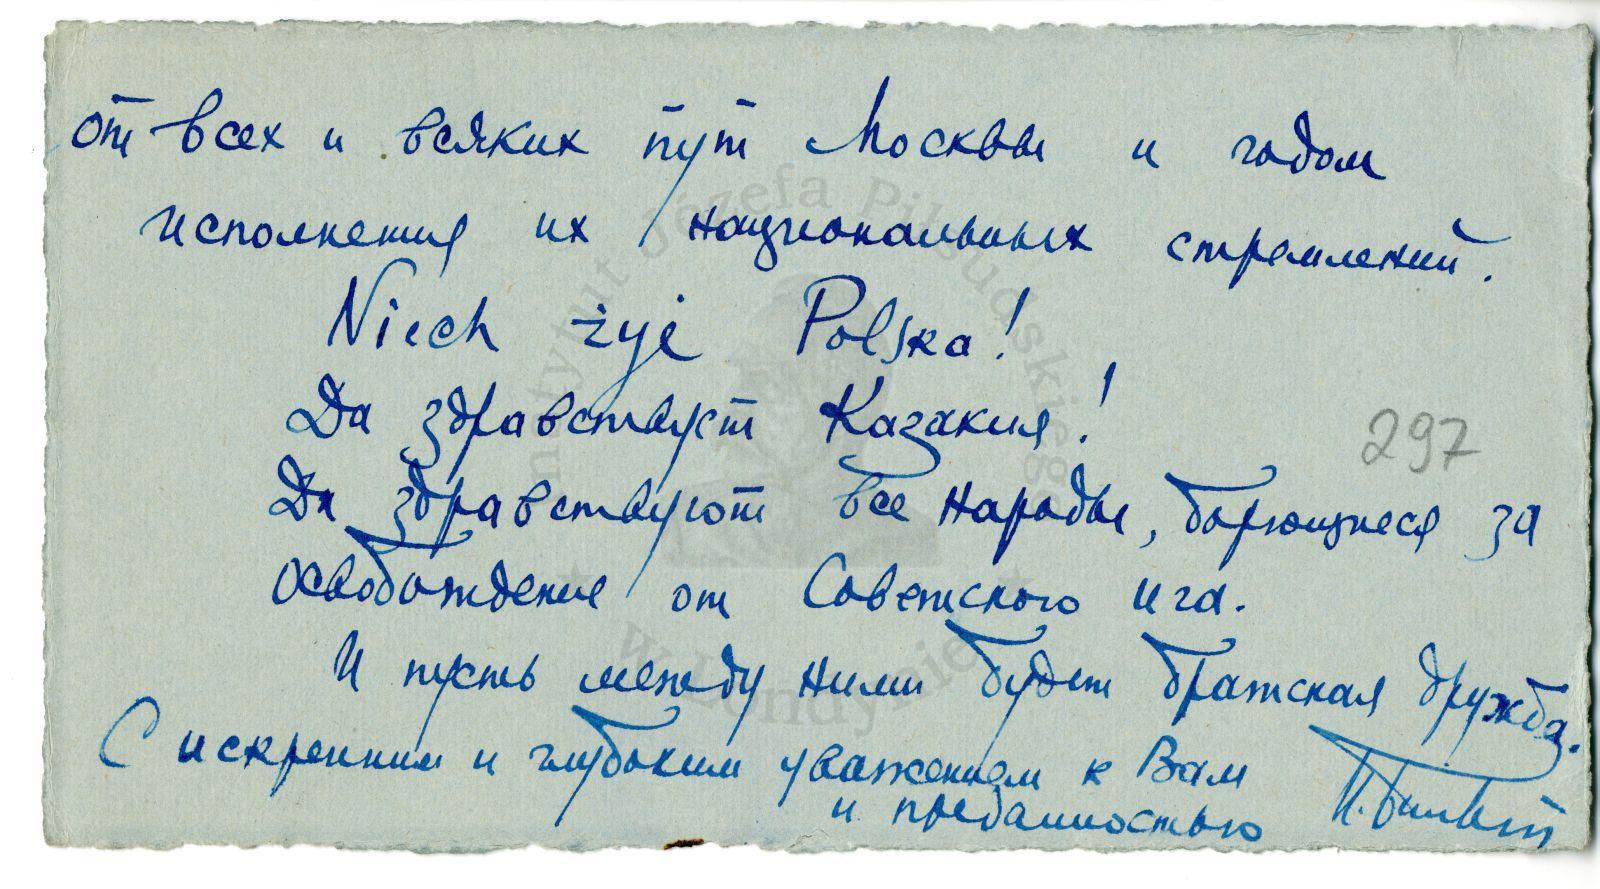 от всех и всяких пут Москвы и годом
исполнения их национальных стремлений.
Niech żyje Polska!
Да здравствует Казакия!
297
Да здравствуют все народы, борющиеся за
освобождение от Советского ига.
И пусть между ними будет братская дружба.
С искренним и глубоким уважением к Вам
и преданностью
Instytut Józefa Piłsudskiego
w Londynie